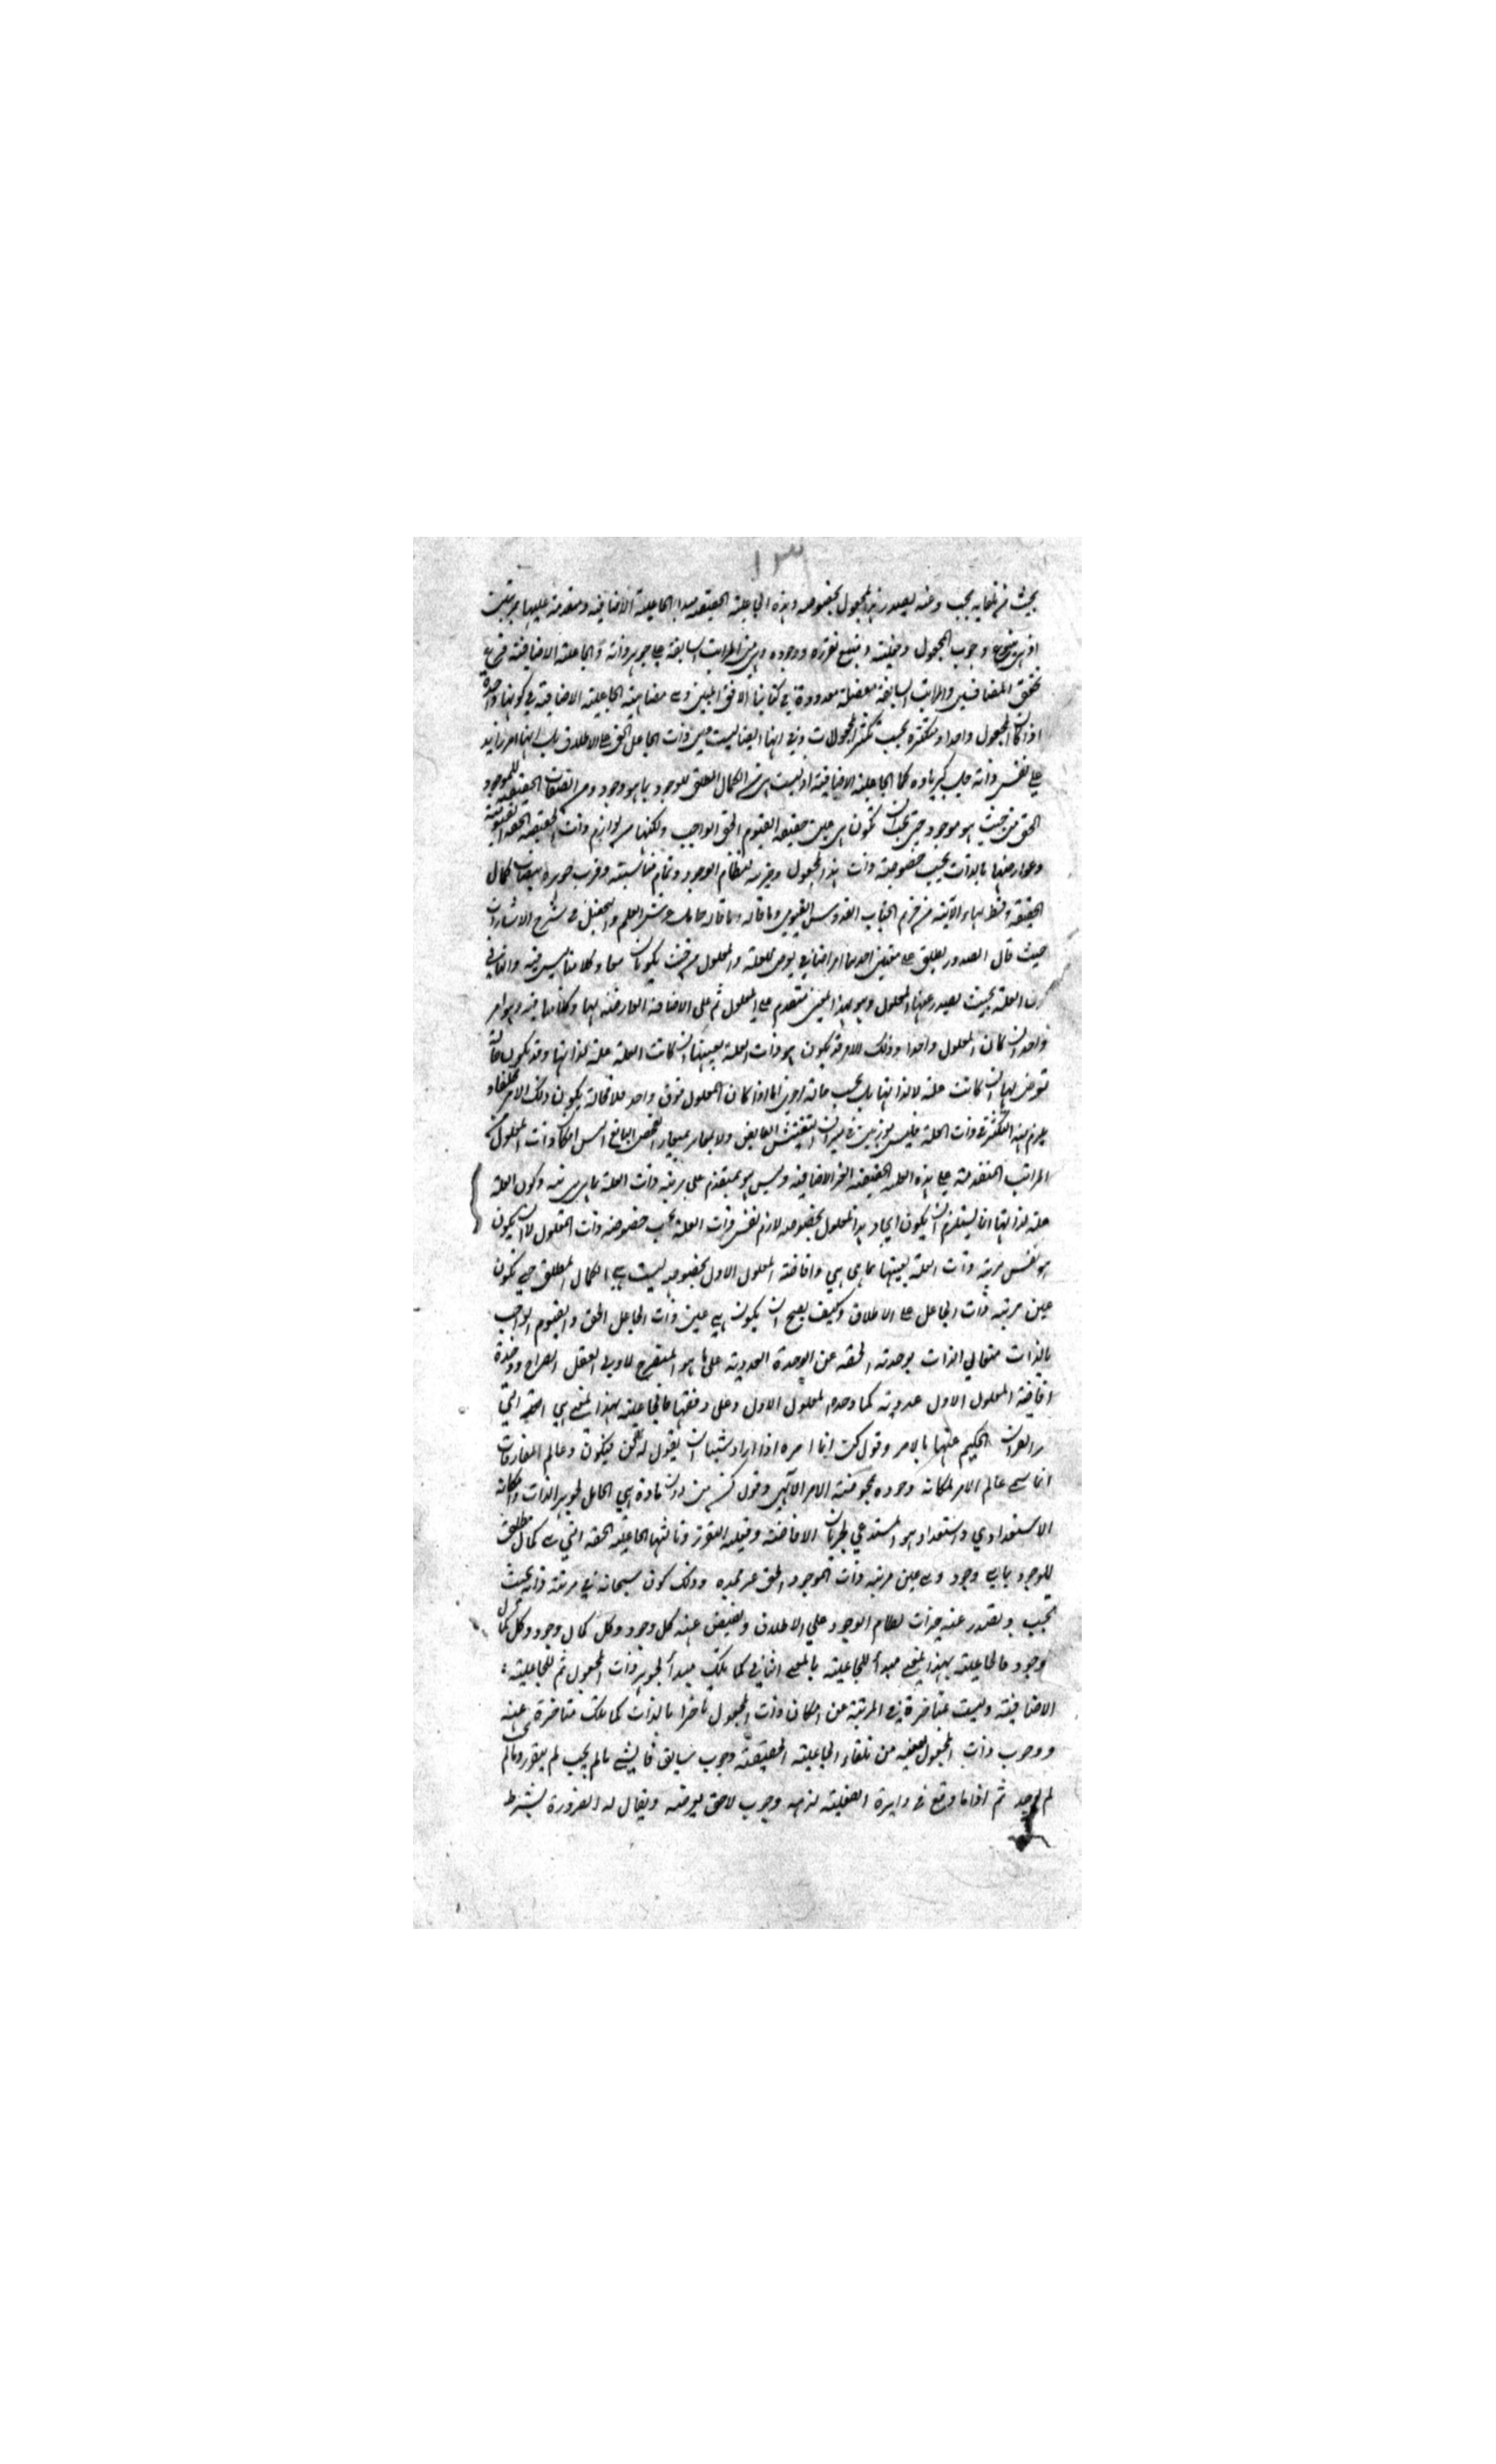 ١٣
بحيث من تلقائه يجب وعنه يصدر هذا المجعول بخصوصه وهذه الجاعلية الحقيقية مبدأ الجاعلية الاضافية ومتقدمة عليها بمرتبتين
اذ هي وجوب المجعول وفعليته ومنبع تقرره ووجوده وهي من المراتب السابقة على جوهر ذاته والجاعلية الاضافية فرع
تحقق المضافين والمراتب السابقة مفصلة معدودة في كتابنا الافق المبين وهي مضاهية الجاعلية الاضافية في كونها واحدة
اذا كان المجعول واحدا ومتكثرة بحسب تكثر المجعولات وفي انها ايضا ليست عين ذات الجاعل الحق على الاطلاق بل انها امر زايد
على نفس ذاته جل كبرياؤه كما الجاعلية الاضافية اذ ليست هي من الكمال المطلق للموجود بما هو موجود ومن الصفات الحقيقية للموجود
الحق من حيث هو موجود حتى يجب ان تكون هي عين حقيقة القيوم الحق الواجب ولكنها من لوازم ذات الحقيقة الحقة القيومية
وعوارضها بالذات بحسب خصوصية ذات هذا المجعول وخيريته لنظام الوجود وتمام مناسبته وقرب جوهره لكمال
الحقيقة وقسط البهاء الآتية من الجناب القدوس القيومي وما قاله خاتم عرش العلم والتحصيل في شرح الاشارات
حيث قال الصدور يطلق على معنيين احدهما امر اضافي يعرض للعلة والمعلول من حيث يكونان معا وكلامنا ليس فيه والثاني
كون العلة بحيث يصدر عنها المعلول وهو بهذا المعنى متقدم على المعلول ثم على الاضافة العارضة لها وكلامنا فيه وهو امر
واحد ان كان المعلول واحدا وذلك الامر قد يكون هو ذات العلة بعينها ان كانت العلة علة لذاتها وقد يكون حالة
تعرض لها ان كانت علة لا لذاتها بل بحسب حالة اخرى اما اذا كان المعلول فوق واحد فلا محالة يكون ذلك الامر مختلفا و
يلزم منه التكثر في ذات العلة فليس يوزن في ميزان التفتيش الغايص ولا بمعيار الفحص البالغ اليس امكان ذات المعلول من
المراتب المتقدمة على هذه العلية الحقيقية الغير الاضافية وليس هو بمتقدم على مرتبة ذات العلة بما هي هي وكون العلة
علة لذاتها انما يستلزم ان يكون ايجاد هذا المعلول بخصوصه لازم نفس ذات العلة بحسب خصوصية ذات المعلول لا ان يكون
هو نفس مرتبة ذات العلة بعينها بما هي هي وافاضة المعلول الاول بخصوصه ليست هي الكمال المطلق حتى تكون
عين مرتبة ذات الجاعل على الاطلاق وكيف يصح ان يكون هي عين ذات الجاعل الحق والقيوم الواجب
بالذات متعالي الذات بوحدته الحقة عن الوحدة العددية على ما هو المتقرر لاولي العقل الصراح ووحدة
افاضة المعلول الاول عددية كما وحدة المعلول الاول وعلى وفقها فالجاعلية بهذا المعنى هي التي
في القرآن الحكيم عنها بالامر وقول كن انما امره اذا اراد شيئا ان يقول له كن فيكون وعالم المفارقات
انما سمي عالم الامر لمكانة وجوده بمجرد كنه الامر الالهي وقول كن من دون مادة هي الحامل لجوهر الذات وامكانه
الاستعدادي واستعداد هو المستدعي لجريان الافاضة وفيلة التقرر وثالثها الجاعلية الحقة التي هي كمال مطلق
للوجود بما هي وجود وهي عين مرتبة ذات الموجود الحق عز مجده وذلك كون سبحانه في مرتبة ذاته بحيث
يجب ويصدر عنه خيرات نظام الوجود على الاطلاق ويفيض عنه كل وجود وكل كمال وجود وكل كمال
وجود فالجاعلية بهذا المعنى مبدأ للجاعلية بالمعنى الثاني كما تلك مبدأ لجوهر ذات المجعول ثم للجاعلية
الاضافية وليست متاخرة في المرتبة عن امكان ذات المجعول تاخرا بالذات كما تلك متاخرة عنه
ووجوب ذات المجعول من تلقاء الجاعلية الحقيقية وجوب سابق فالشيء ما لم يجب لم يتقرر وما لم يجب
لم يوجد ثم اذا ما وقع في دايرة الفعلية لزمه وجوب لاحق يعرضه ويقال له الضرورة بشرط